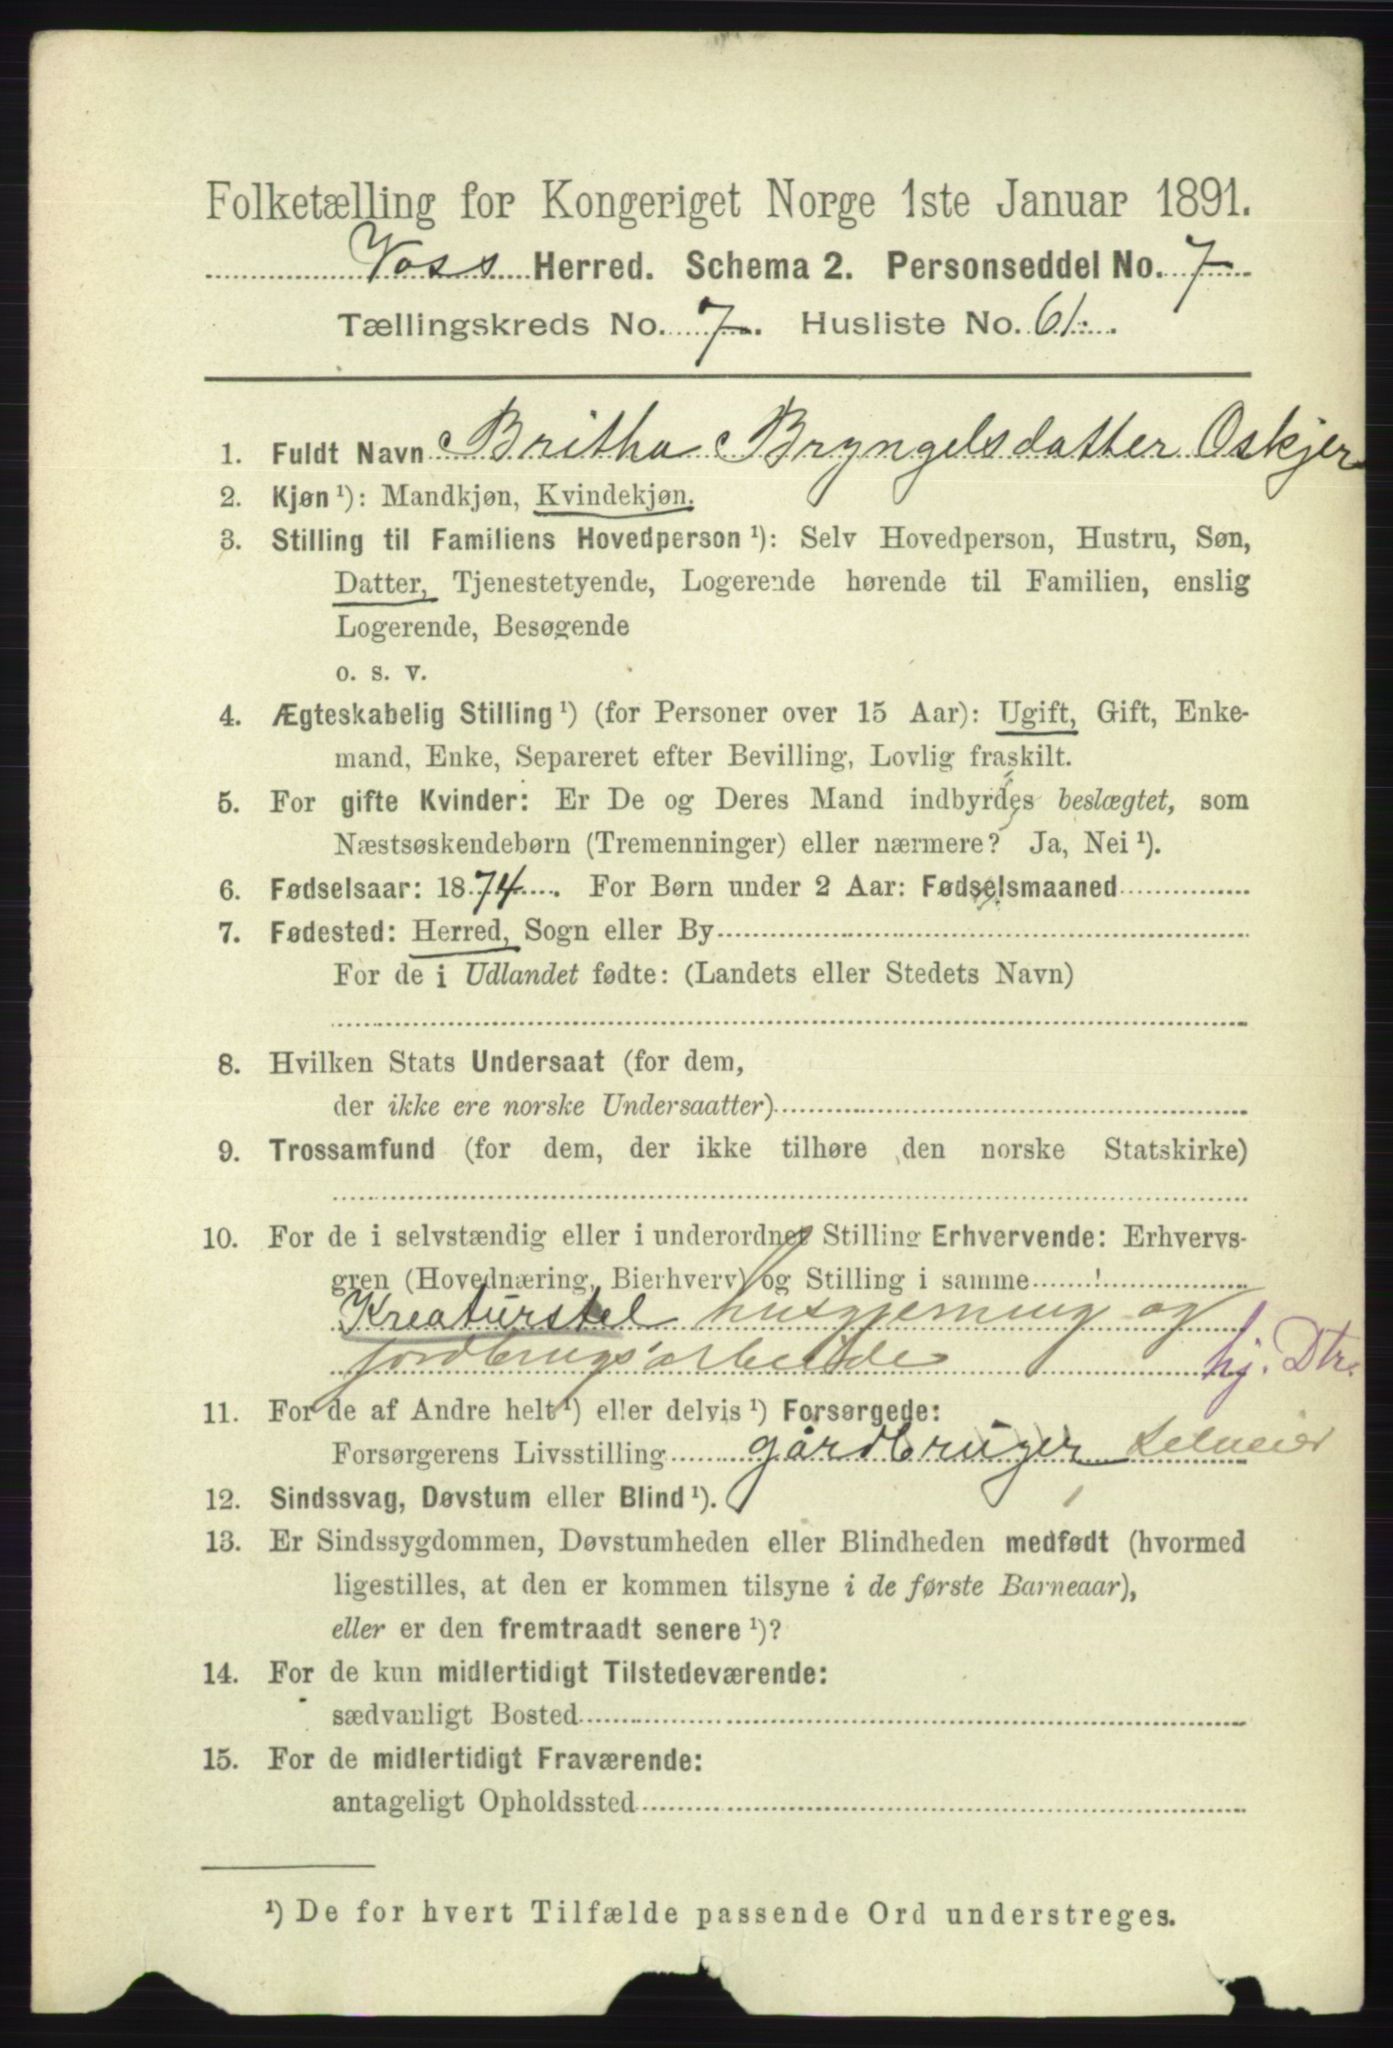 Folketælling for Kongeriget Norge 1ste Januar 1891.
Voss Herred. Schema 2. Personseddel No. 7
Tællingskreds No. 7. Husliste No. 61.
1. Fuldt Navn Britha Bryngelsdatter Oskjer
2. Kjøn ¹): Mandkjøn, Kvindekjøn.
3. Stilling til Familiens Hovedperson ¹): Selv Hovedperson, Hustru, Søn,
Datter, Tjenestetyende, Logerende hørende til Familien, enslig
Logerende, Besøgende
o. s. v.
4. Ægteskabelig Stilling ¹) (for Personer over 15 Aar): Ugift, Gift, Enke-
mand, Enke, Separeret efter Bevilling, Lovlig fraskilt.
5. For gifte Kvinder: Er De og Deres Mand indbyrdes beslægtet, som
Næstsøskendebørn (Tremenninger) eller nærmere? Ja, Nei ¹).
6. Fødselsaar: 1874. For Børn under 2 Aar: Fødselsmaaned
7. Fødested: Herred, Sogn eller By
For de i Udlandet fødte: (Landets eller Stedets Navn)
8. Hvilken Stats Undersaat (for dem,
der ikke ere norske Undersaatter)
9. Trossamfund (for dem, der ikke tilhøre den norske Statskirke)
10. For de i selvstændig eller i underordnet Stilling Erhvervende: Erhvervs-
gren (Hovednæring, Bierhverv) og Stilling i samme
Kreaturstel husgjerning og
jordbrugsarbeide hj. Dtr.
11. For de af Andre helt ¹) eller delvis ¹) Forsørgede:
Forsørgerens Livsstilling gårdbruger Selveier
12. Sindssvag, Døvstum eller Blind ¹).
13. Er Sindssygdommen, Døvstumheden eller Blindheden medfødt (hvormed
ligestilles, at den er kommen tilsyne i de første Barneaar),
eller er den fremtraadt senere ¹)?
14. For de kun midlertidigt Tilstedeværende:
sædvanligt Bosted
15. For de midlertidigt Fraværende:
antageligt Opholdssted
¹) De for hvert Tilfælde passende Ord understreges.